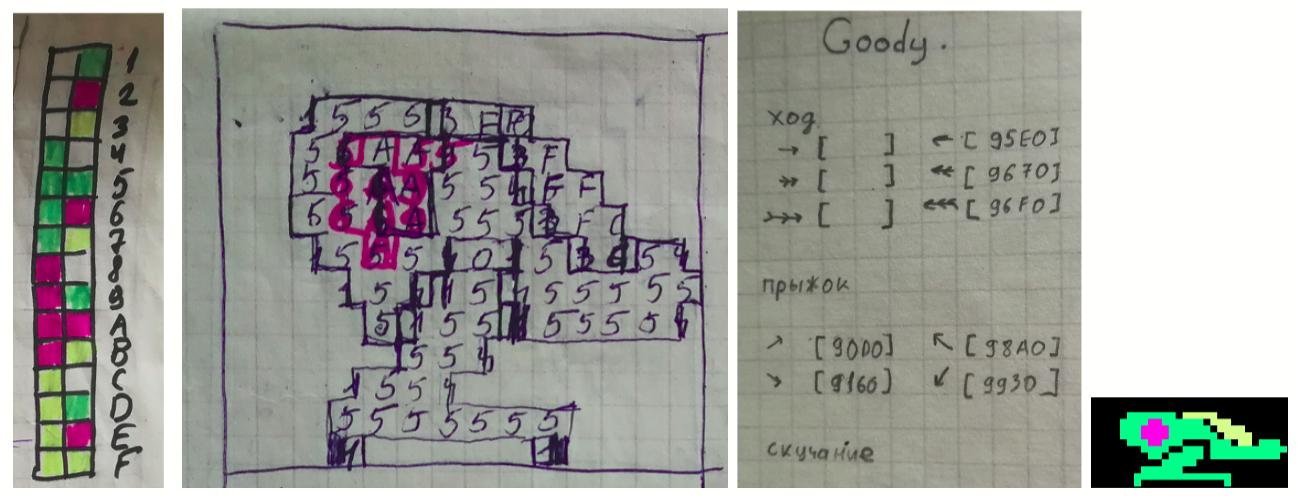 1
2
3
4
5
6
7
8
9
A
B
C
D
E
F
5 5 5 3 F
5 A A 5 5 F
5 A 5 5 F F
5 5 A 5 5 5 F C
1 5 5 5 1 0 1 5 3 C 5 4
1 5 1 1 5 5 5 5 5 5
5 1 5 5 5 5 5 5 4
5 5 4
1 5 5 4
5 5 5 5 5 5 5
1 1
Goody.
ход
→ [ ] ← [95E0]
↠ [ ] ↞ [9670]
[ ] [96F0]
прыжок
↗ [90D0] ↖ [98A0]
↘ [9160] ↙ [9930]
скучание